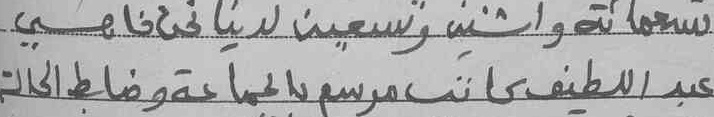 تسعمائة واثنين وتسعين لدينا نحن فاهسي
عبد اللطيف كاتب مرسم بالجماعة وضابط الحالة